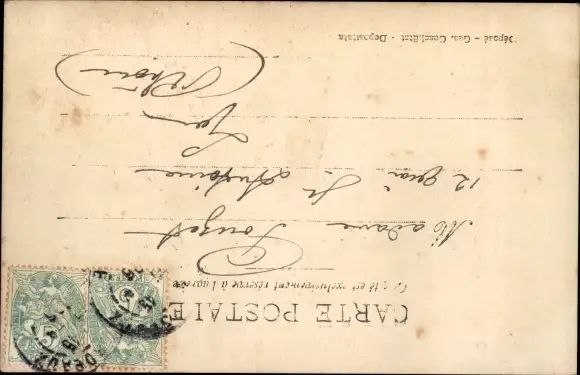 CARTE POSTALE
Ce côté est exclusivement réservé à l'adresse
Madame
Pouzet
12 quai St Antoine
Lyon
(Rhône)
Déposé - Ges. Geschützt - Depositata